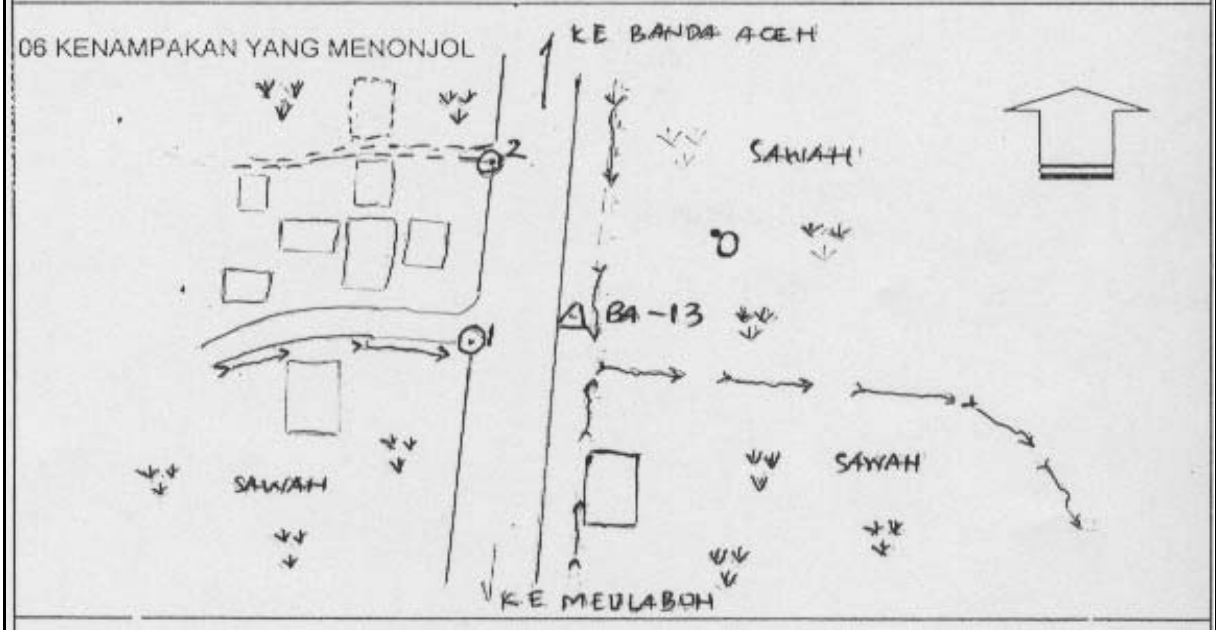 06 KENAMPAKAN YANG MENONJOL
KE BANDA ACEH
2
SAWAH
BA-13
1
SAWAH
SAWAH
KE MEULABOH